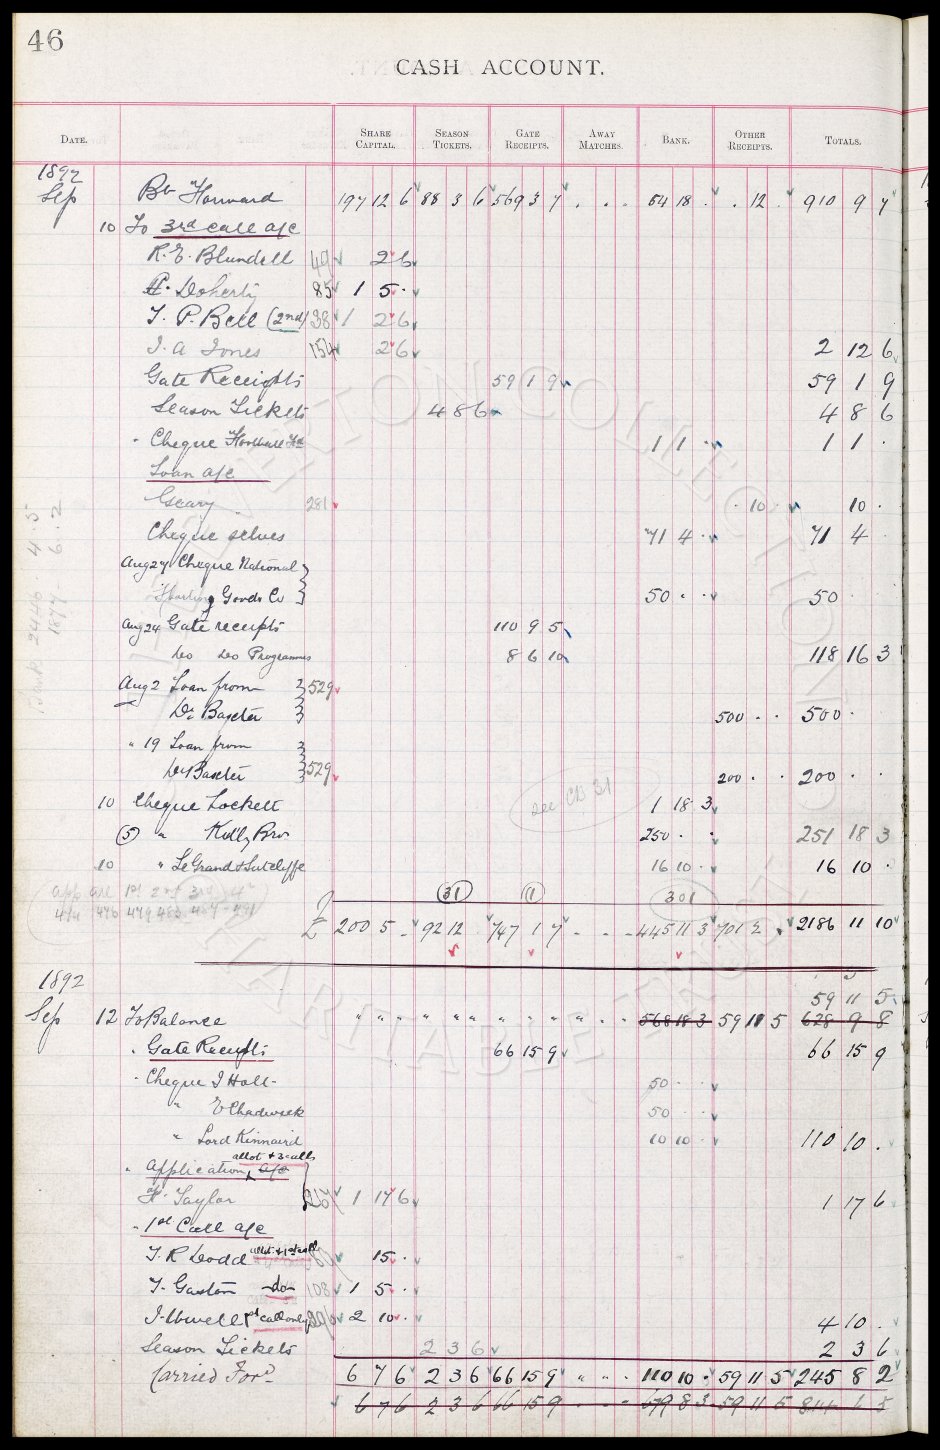 46
CASH ACCOUNT.
DATE. SHARE CAPITAL. SEASON TICKETS. GATE RECEIPTS. AWAY MATCHES. BANK. OTHER RECEIPTS. TOTALS.
1892
Sep Bt Forward 197 12 6 88 3 6 569 3 7 . . . 54 18 . . 12 . 910 9 7
10 To 3rd call a/c
R. E. Blundell 49 2 6
H. Doherty 85 1 5 .
T. P. Bell (2nd) 38 1 2 6
J. A Jones 154 2 6 2 12 6
Gate Receipts 59 1 9 59 1 9
Season Tickets 4 8 6 4 8 6
" Cheque 1 1 . 1 1 .
Loan a/c
Geary 281 . 10 . 10 .
Cheque selves 71 4 . 71 4 .
Aug 27 Cheque National
Sporting Goods Co 50 . . 50 .
Aug 24 Gate receipts 110 9 5
Do Do Programmes 8 6 10 118 16 3
Aug 2 Loan from 529
Dr Baxter 500 . . 500 .
" 19 Loan from
Dr Baxter 529 200 . . 200 . .
see CB 31
10 Cheque Lockett 1 18 3
(5) " Kelly Bros 250 . . 251 18 3
10 " Le Grand & Sutcliffe 16 10 . 16 10 .
app all 1st 2nd 3rd 4th
31 11 301
£ 200 5 . 92 12 747 1 7 . . . 445 11 3 701 2 . 2186 11 10
1892
59 11 5
Sep 12 To Balance " " " " " " " " " . . 568 18 3 59 11 5 628 9 8
" Gate Receipts 66 15 9 66 15 9
" Cheque J Holt 50 . .
" E Chadwick 50 . .
" Lord Kinnaird 10 10 . 110 10 .
allot & 3 calls
" Application a/c
H. Taylor 1 17 6 1 17 6
" 1st Call a/c
T. R Dodd allot & 1st call 15 .
T. Gaston do 108 1 5 .
J. Atwell 1st call only 2 10 . 4 10 .
Season Tickets 2 3 6 2 3 6
Carried Ford 6 7 6 2 3 6 66 15 9 " " " 110 10 . 59 11 5 245 8 2
6 7 6 2 3 6 66 15 9 . . . 679 8 3 59 11 5 814 6 5